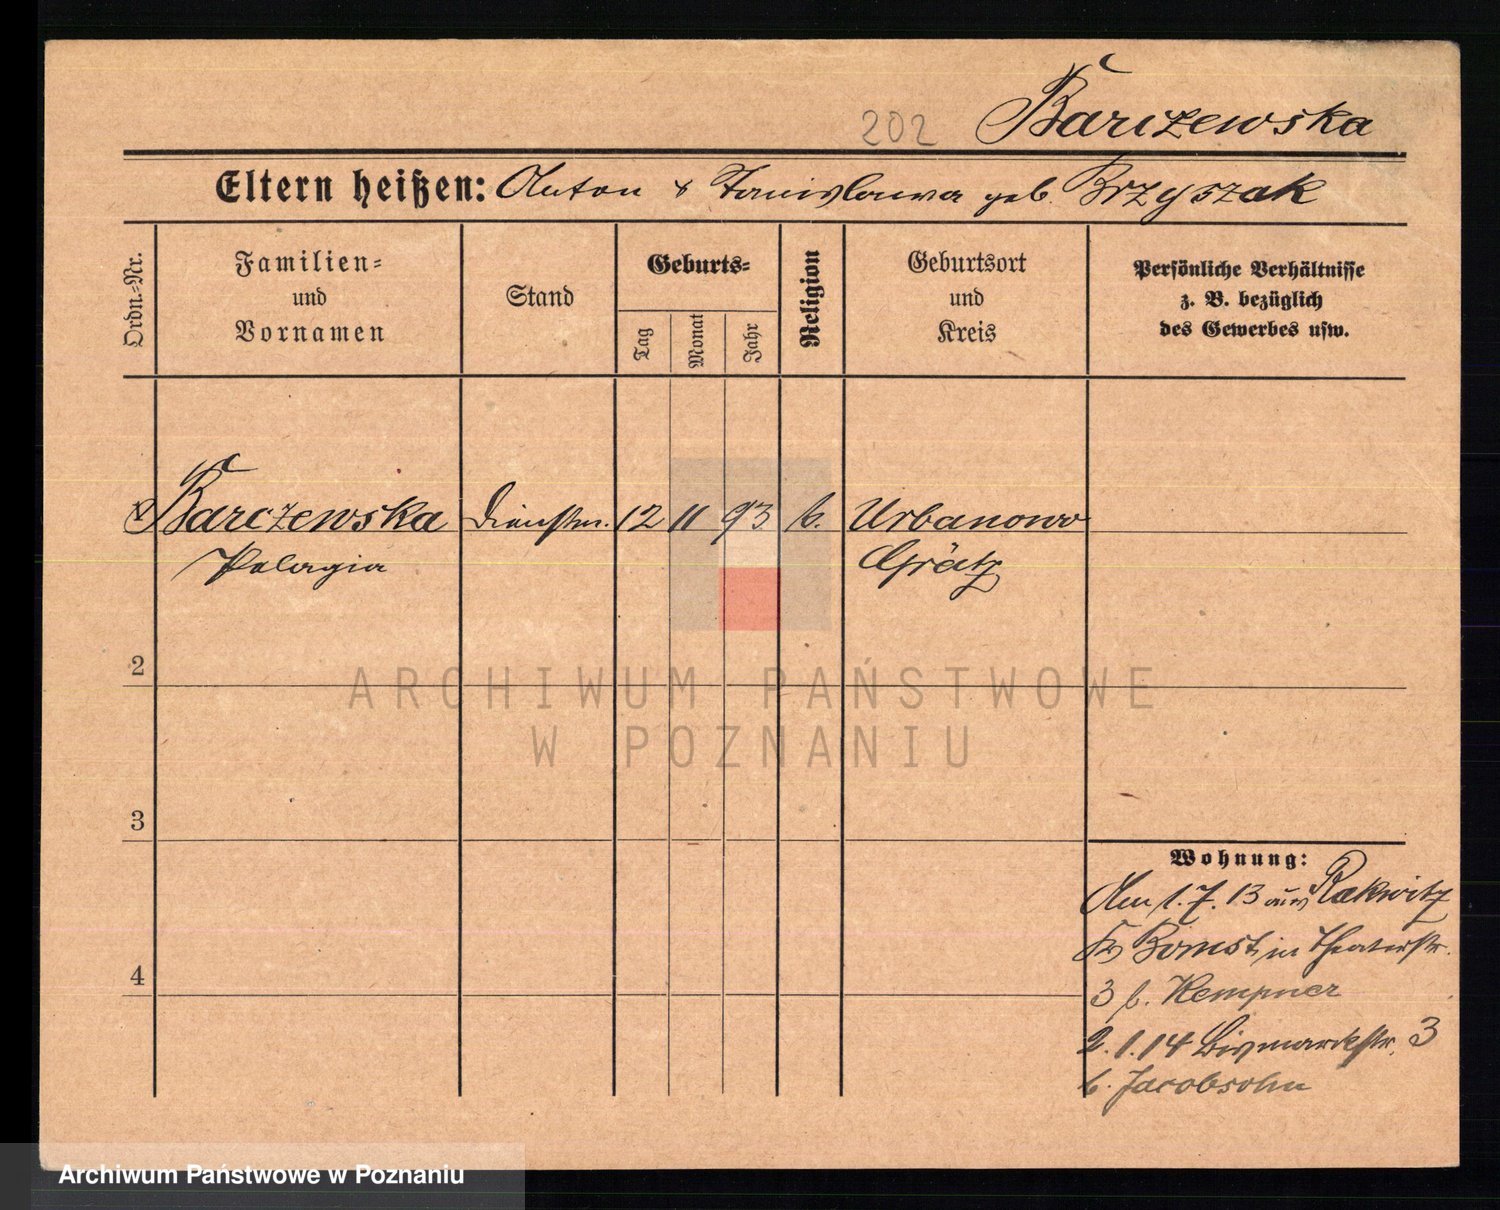 202 Barczewska
Eltern heißen: Anton & Stanislawa geb. Brzyszak
Ordn.-Nr.
Familien-
und
Vornamen
Stand
Geburts-
Tag
Monat
Jahr
Religion
Geburtsort
und
Kreis
Persönliche Verhältnisse
z. B. bezüglich
des Gewerbes usw.
1 Barczewska Dienstm. 12 11 93 k. Urbanowo
Pelagia Grätz
2
ARCHIWUM PAŃSTWOWE
W POZNANIU
3
Wohnung:
Am 1. 7. 13 aus Rakwitz
Kr Bomst in Theaterstr.
4
3 b. Kempner
2. 1. 14 Bismarckstr. 3
b. Jacobsohn
Archiwum Państwowe w Poznaniu